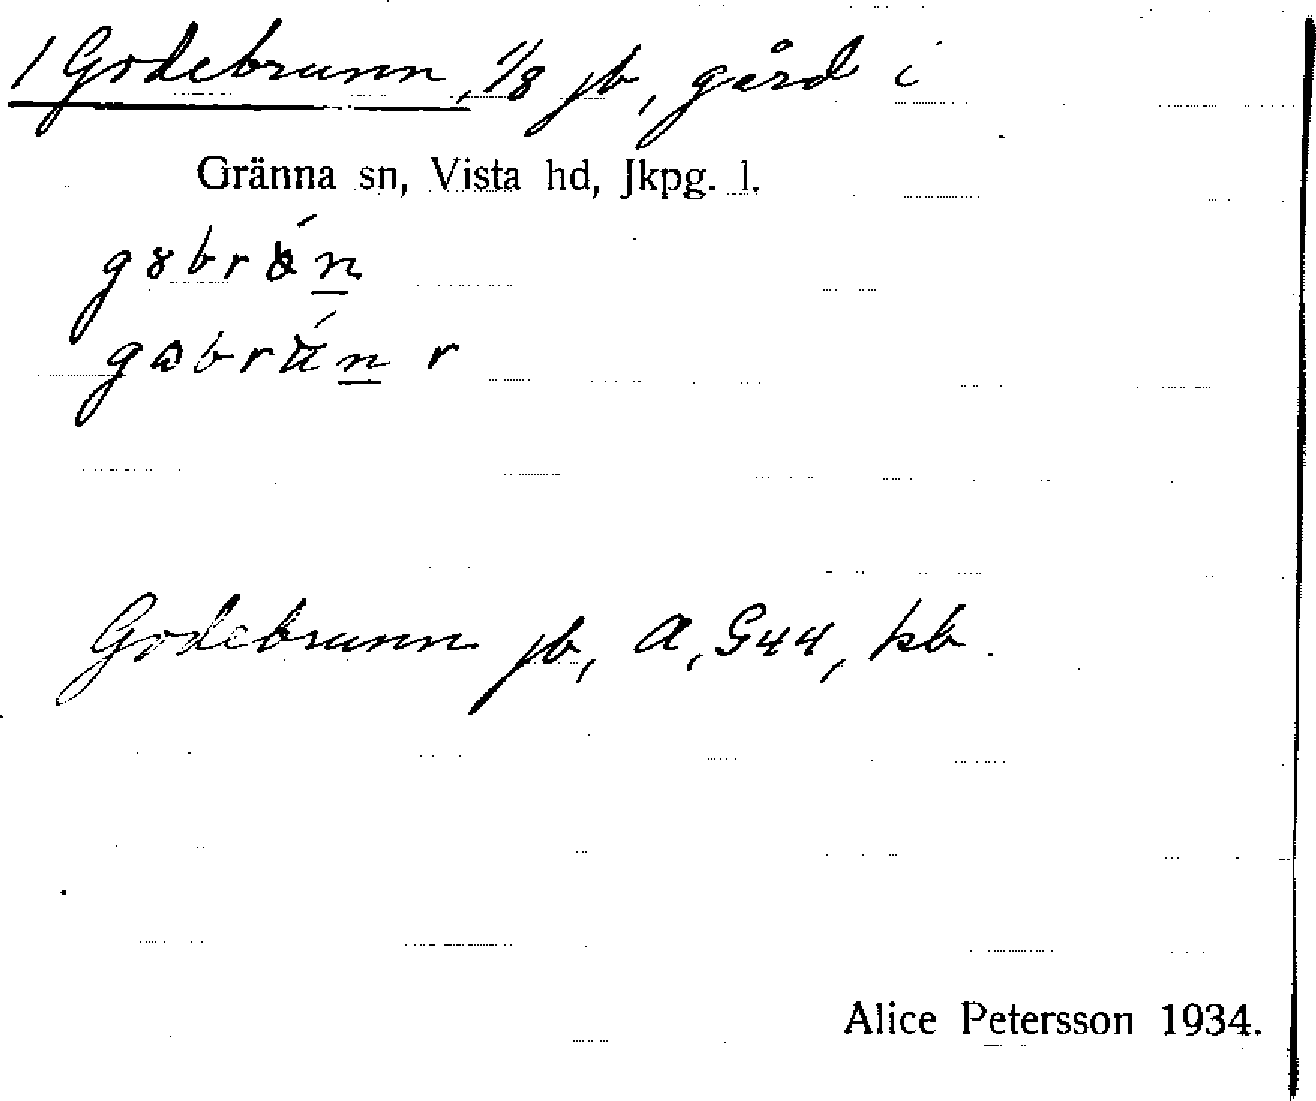 1 Godebrunn, 1/8 jb, gård i
Gränna sn, Vista hd, Jkpg. l.
Godebrunn jb, A, G44, kb.
Alice Petersson 1934.